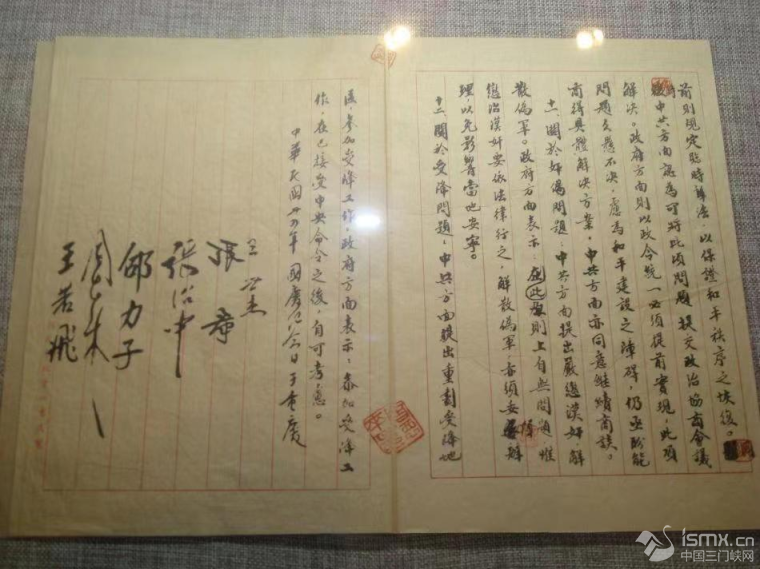 前則規定臨時辦法，以保證和平秩序之恢復。
中共方面認為可將此項問題提交政治協商會議
解决。政府方面則以政令統一必須提前實現，此項
問題久懸不决，慮為和平建設之障碍，仍亟盼能
商得具體解决方案。中共方面亦同意繼續商談。
十一、關於奸偽問題：中共方面提出嚴懲漢奸，解
散偽軍。政府方面表示：在此原則上自無問題，惟
懲治漢奸要依法律行之，解散偽軍亦須妥慎辦
理，以免影響當地安寧。
十二、關於受降問題：中共方面提出重劃受降地
區，參加受降工作，政府方面表示：參加受降工
作，在已接受中央命令之後，自可考慮。
中華民國卅四年國慶紀念日于重慶
王世杰
張羣
張治中
邵力子
周恩來
王若飛
ismx.cn
中国三门峡网